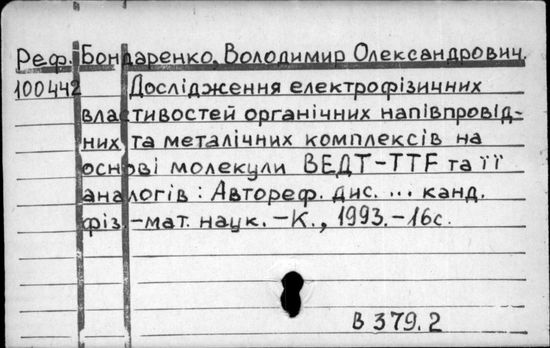 Реф. Бондаренко, Володимир Олександрович.
100442 Дослідження електрофізичних
властивостей органічних напівпровід-
них та металічних комплексів на
основі молекули ВЕДТ-ТТF та її
аналогів : Автореф. дис. ... канд.
фіз.-мат. наук. -К., 1993.-16с.
В 379.2